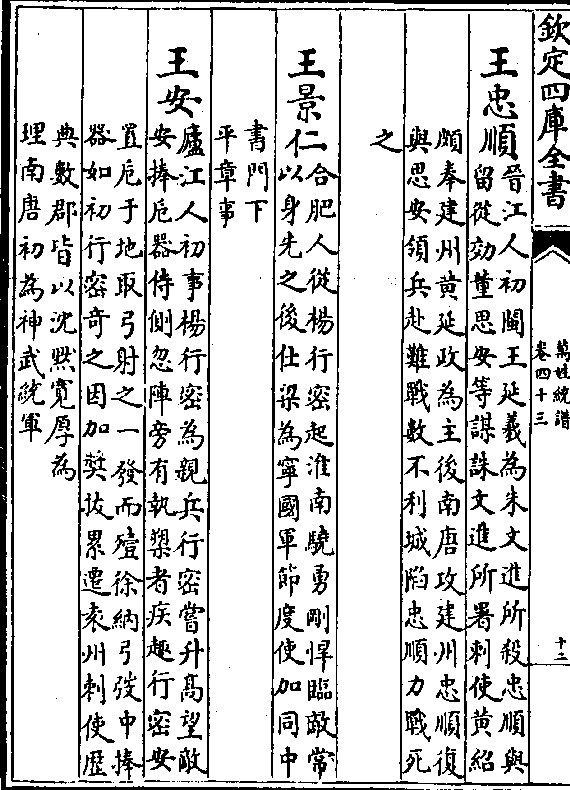 欽定四庫全書
萬姓統譜
卷四十三
十二
王忠順晉江人初閩王延羲為朱文進所殺忠順與
留從効董思安等謀誅文進所署刺使黄紹
頗奉建州黄延政為主後南唐攻建州忠順復
與思安領兵赴難戰數不利城陷忠順力戰死
之
王景仁合肥人從楊行密起淮南驍勇剛悍臨敵常
以身先之後仕梁為寧國軍節度使加同中
書門下
平章事
王安廬江人初事楊行密為親兵行密嘗升髙望敵
安捧卮器侍側忽陣旁有執槊者疾趣行密安
置卮于地取弓射之一發而殪徐納弓弢中捧
器如初行密竒之因加奬拔累遷袁州刺使歴
典數郡皆以沈黙寛厚為
理南唐初為神武統軍